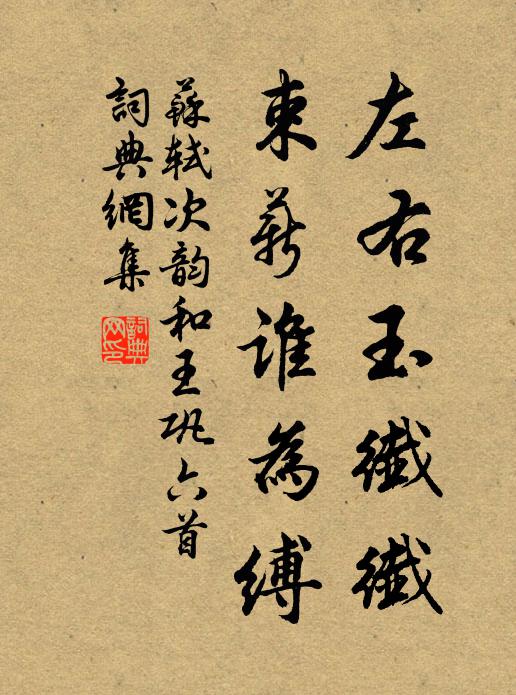 左右玉纖纖
束薪誰為縛
蘇軾次韵和王巩六首
詞典網集
詞典网印